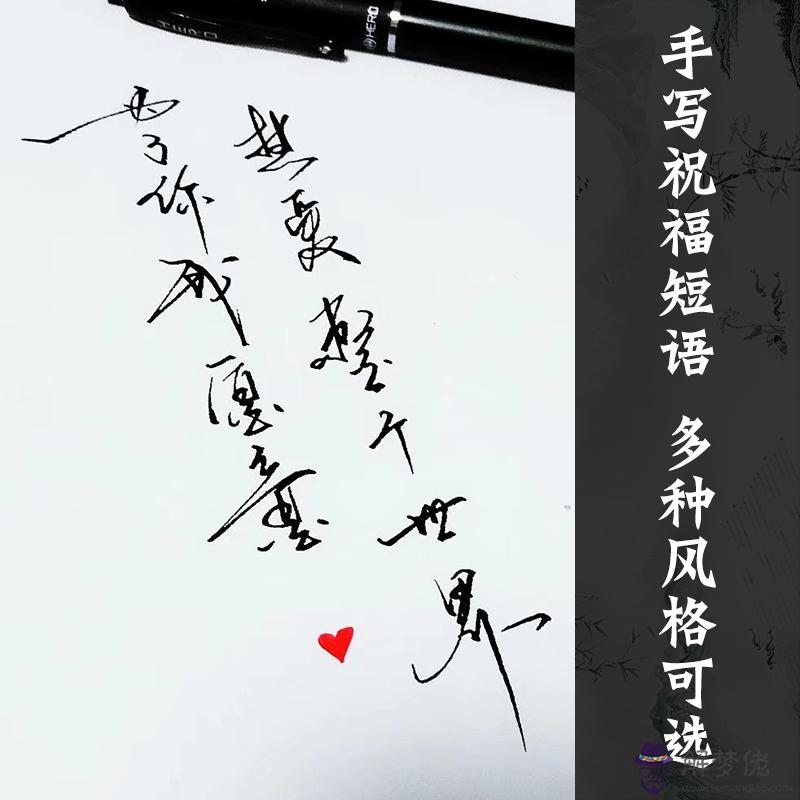 HERO
HERO
为了你我愿意
热爱整个世界
手写祝福短语 多种风格可选
解梦佬